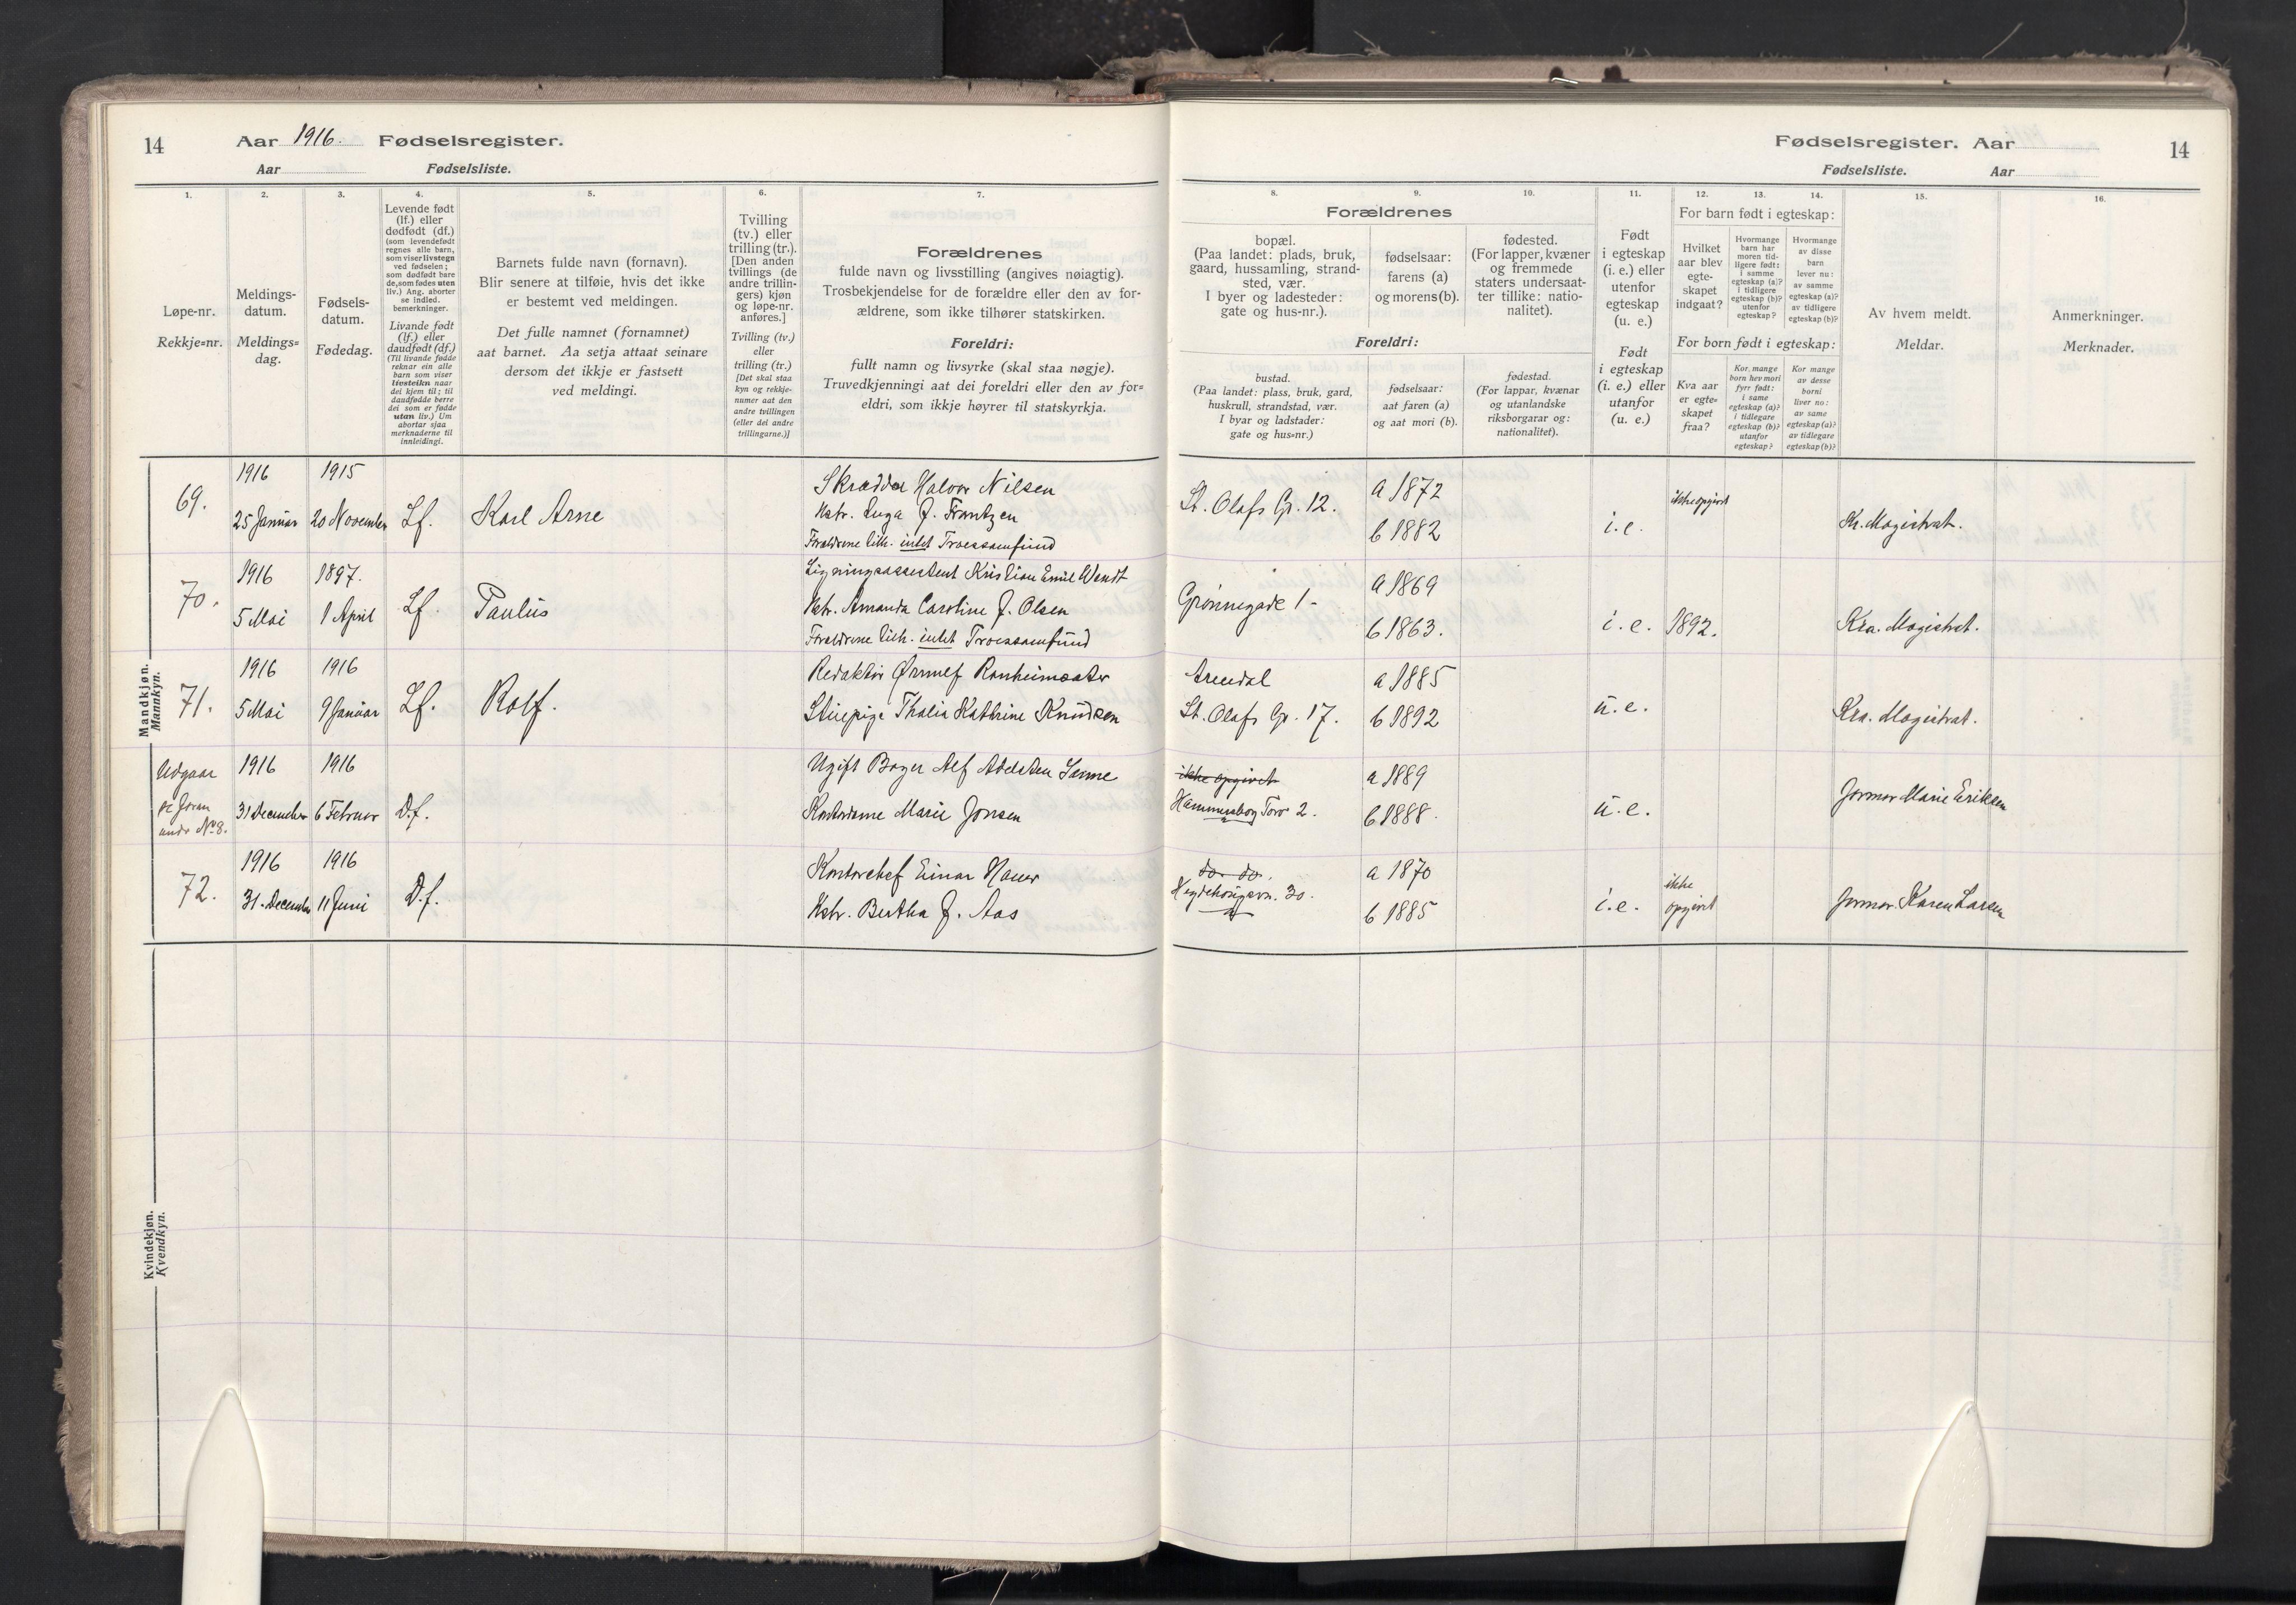 14 Aar 1916. Fødselsregister.
Aar Fødselsliste.
Fødselsregister. Aar 14
Fødselsliste. Aar
1.
Løpe-nr.
Rekkje=nr.
2.
Meldings-
datum.
Meldings=
dag.
3.
Fødsels-
datum.
Fødedag.
4.
Levende født
(lf.) eller
dødfødt (df.)
(som levendefødt
regnes alle barn,
som viser livstegn
ved fødselen;
som dødfødt bare
de, som fødes uten
liv.) Ang. aborter
se indled.
bemerkninger.
Livande født
(lf.) eller
daudfødt (df.)
(Til livande fødde
reknar ein alle
barn som viser
livsteikn naar
dei kjem til; til
daudfødde berre
dei som er fødde
utan liv.) Um
abortar sjaa
merknaderne til
innleidingi.
5.
Barnets fulde navn (fornavn).
Blir senere at tilføie, hvis det ikke
er bestemt ved meldingen.
Det fulle namnet (fornamnet)
aat barnet. Aa setja attaat seinare
dersom det ikkje er fastsett
ved meldingi.
6.
Tvilling
(tv.) eller
trilling (tr.).
[Den anden
tvillings (de
andre trillin-
gers) kjøn
og løpe-nr.
anføres.]
Tvilling (tv.)
eller
trilling (tr.)
[Det skal staa
kyn og rekkje-
numer aat den
andre tvillingen
(eller dei andre
trillingarne.)]
7.
Forældrenes
fulde navn og livsstilling (angives nøiagtig).
Trosbekjendelse for de forældre eller den av for-
ældrene, som ikke tilhører statskirken.
Foreldri:
fullt namn og livsyrke (skal staa nøgje).
Truvedkjenningi aat dei foreldri eller den av for=
eldri, som ikkje høyrer til statskyrkja.
Forældrenes
8.
bopæl.
(Paa landet: plads, bruk,
gaard, hussamling, strand-
sted, vær.
I byer og ladesteder:
gate og hus-nr.).
9.
fødselsaar:
farens (a)
og morens (b).
10.
fødested.
(For lapper, kvæner
og fremmede
staters undersaat-
ter tillike: natio-
nalitet).
Foreldri:
bustad.
(Paa landet: plass, bruk, gard,
huskrull, strandstad, vær.
I byar og ladstader:
gate og hus=nr.)
fødselsaar:
aat faren (a)
og aat mori (b).
fødestad.
(For lappar, kvænar
og utanlandske
riksborgarar og:
nationalitet).
11.
Født
i egteskap
(i. e.) eller
utenfor
egteskap
(u. e.)
Født
i egteskap
(i. e.) eller
utanfor
(u. e.)
12. 13. 14.
For barn født i egteskap:
Hvilket
aar blev
egte-
skapet
indgaat?
Hvormange
barn har
moren tid-
ligere født:
i samme
egteskap (a)?
i tidligere
egteskap (b)?
utenfor
egteskap?
Hvormange
av disse
barn
lever nu:
av samme
egteskap (a)?
av tidligere
egteskap (b)?
For born født i egteskap:
Kva aar
er egte=
skapet
fraa?
Kor mange
born hev mori
fyrr født:
i same
egteskap (a)?
i tidlegare
egteskap (b)?
utanfor
egteskap?
Kor mange
av desse
borni
liver no:
av same
egteskap (a)?
av tidlegare
egteskap (b)?
15.
Av hvem meldt.
Meldar.
16.
Anmerkninger.
Merknader.
Mandkjøn.
Mannkyn.
69.
1916
25 Januar
1915
20 November
Lf.
Karl Arne
Skrædder Halvor Nilsen
Hstr. Inga f. Frantzen
Forældrene tilh. intet Troessamfund
St. Olafs Gr. 12.
a 1872
b 1882
i. e.
ikke opgivet
Kr. Magistrat.
70.
1916
5 Mai
1897.
1 April
Lf.
Paulus
Ligningsassistent Kristian Emil Wendt
Hstr. Amanda Caroline f. Olsen
Forældrene tilh. intet Troessamfund
Grønnegade 1 -
a 1869
b 1863.
i. e.
1892.
Kra. Magistrat.
71.
1916
5 Mai
1916
9 Januar
Lf.
Rolf.
Redaktør Ørnulf Ronheimsæter
Stuepige Thalia Kathrine Knudsen
Arendal
St. Olafs Gr. 17.
a 1885
b 1892
u. e.
Kra. Magistrat.
Udgaar
se foran
under No 8.
1916
31 December
1916
6 Februar
D.f.
Ugift Bager Alf Adelsten
Kontordame Marie Jonsen
ikke opgivet
Hammersborg Torv 2.
a 1889
b 1888.
u. e.
Jormor Marie Eriksen
72.
1916
31. December
1916
11 Juni
D.f.
Kontorchef Einar Hauer
Hstr. Bertha f. Aas
do. do.
Hegdehaugsvn. 30.
a 1870
b 1885
i. e.
ikke
opgivet
Jormor Karen Larsen
Kvindekjøn.
Kvendkyn.